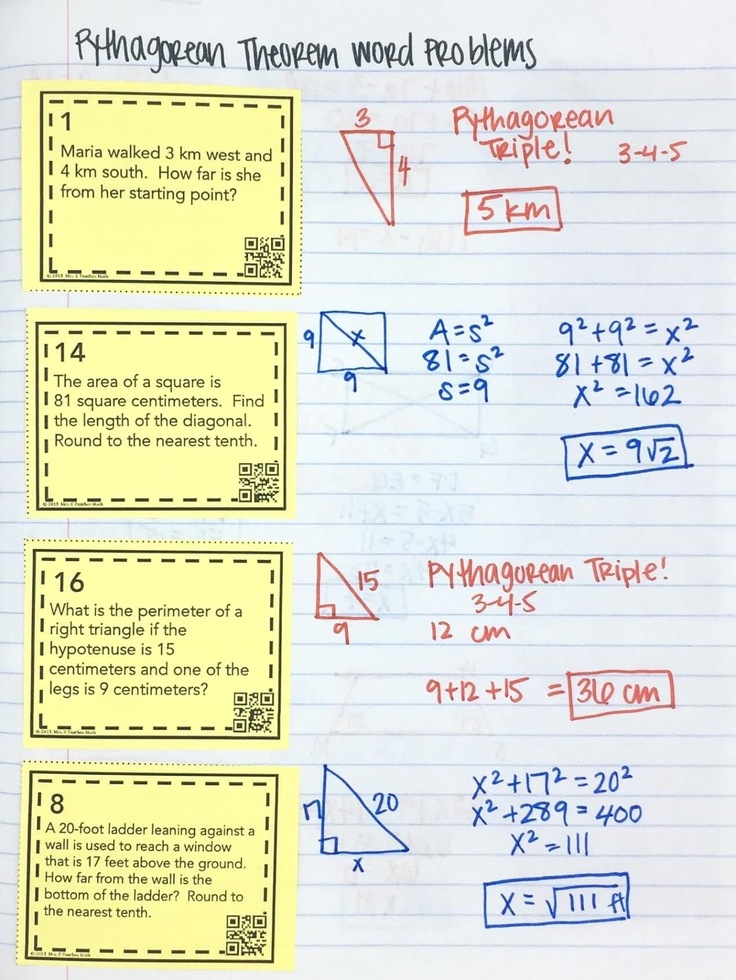 Pythagorean Theorem Word Problems
1
Maria walked 3 km west and
4 km south. How far is she
from her starting point?
© 2013 Mrs. E Teaches Math
3
4
Pythagorean
Triple!
3-4-5
5 km
14
The area of a square is
81 square centimeters. Find
the length of the diagonal.
Round to the nearest tenth.
© 2013 Mrs. E Teaches Math
9
x
9
A=s²
81=s²
s=9
9²+9²=x²
81+81=x²
x²=162
x=9√2
16
What is the perimeter of a
right triangle if the
hypotenuse is 15
centimeters and one of the
legs is 9 centimeters?
© 2013 Mrs. E Teaches Math
15
9
Pythagorean Triple!
3-4-5
12 cm
9+12+15 = 36 cm
8
A 20-foot ladder leaning against a
wall is used to reach a window
that is 17 feet above the ground.
How far from the wall is the
bottom of the ladder? Round to
the nearest tenth.
© 2013 Mrs. E Teaches Math
17
20
x
x²+17²=20²
x²+289=400
x²=111
x=√111 ft